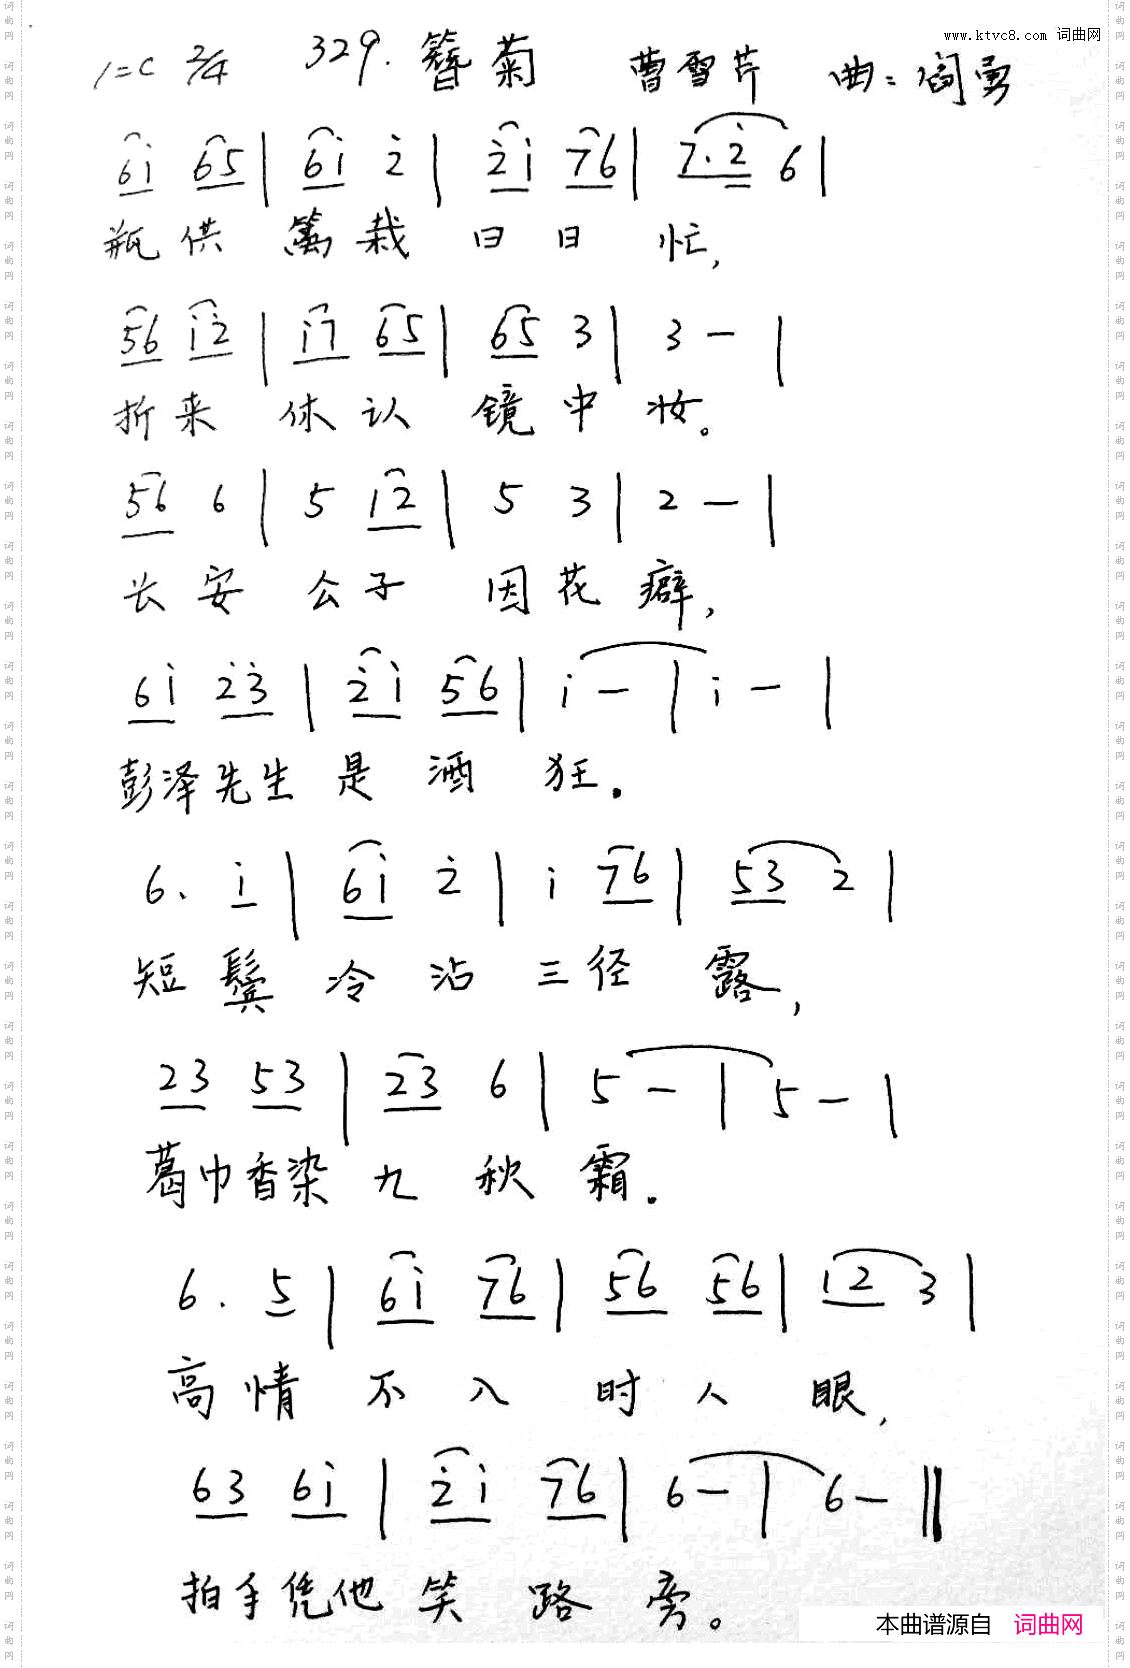 www.ktvc8.com 词曲网
1=C 2/4 329. 簪菊 曹雪芹 曲: 阎勇
6i 65 | 6i 2 | 2i 76 | 7. 2 6 |
瓶供 篱栽 日日 忙,
56 i2 | i7 65 | 65 3 | 3 - |
折来 休认 镜中 妆。
56 6 | 5 12 | 5 3 | 2 - |
长安 公子 因花 癖,
6i 23 | 2i 56 | i - | i - |
彭泽先生 是 酒 狂.
6. i | 6i 2 | i 76 | 53 2 |
短鬓 冷 沾 三径 露,
23 53 | 23 6 | 5 - | 5 - |
葛巾香染 九 秋 霜.
6. 5 | 6i 76 | 56 56 | 12 3 |
高情 不 入 时 人 眼,
63 6i | 2i 76 | 6 - | 6 - ||
拍手凭他 笑 路 旁。
本曲谱源自 词曲网